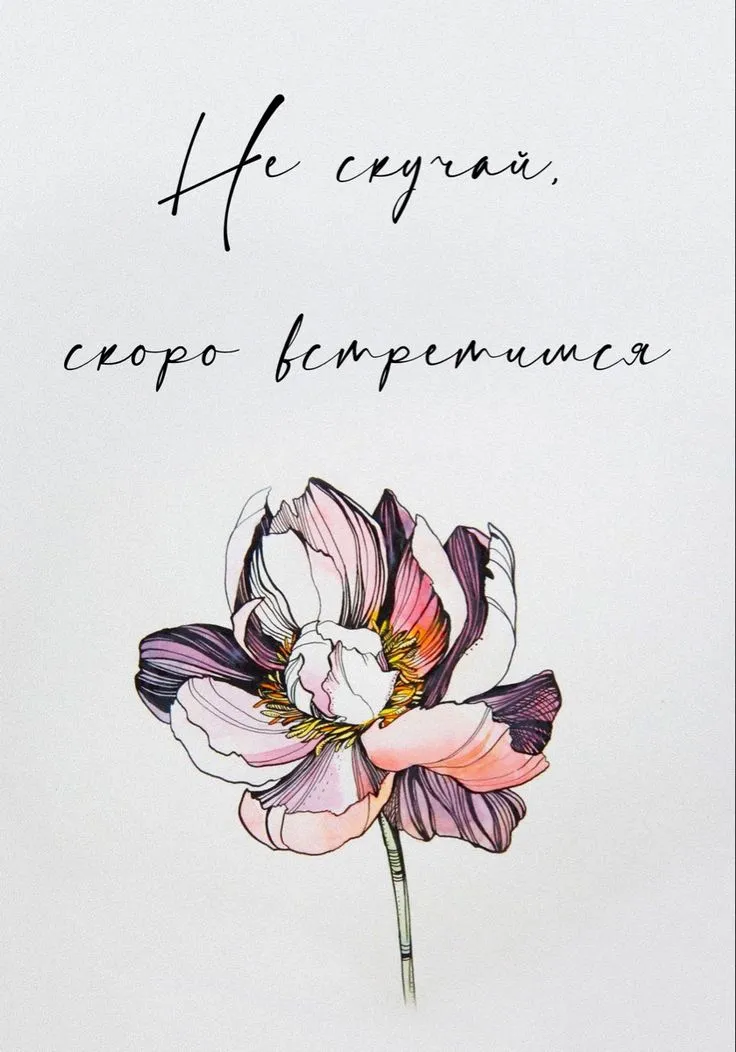 Не скучай,
скоро встретимся